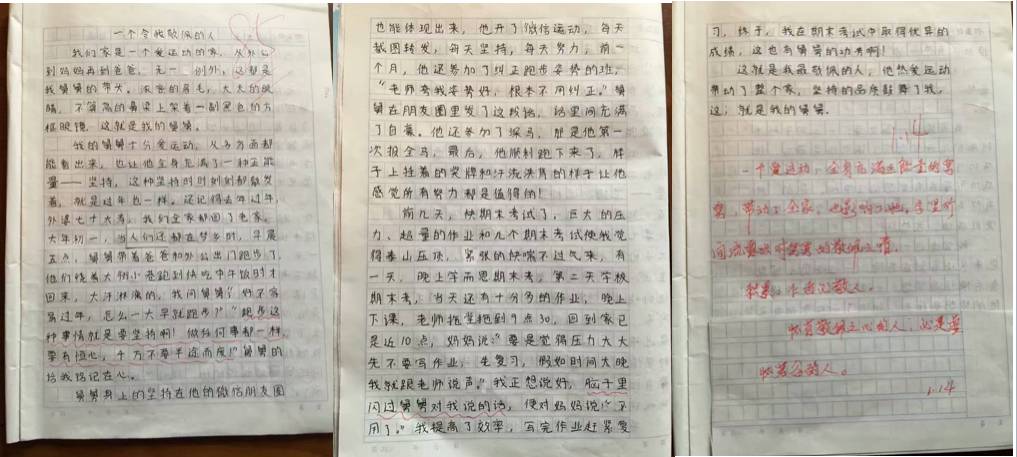 一个令我敬佩的人
95
我们家是一个爱运动的家，从外公
到妈妈再到爸爸，无一例外，这都是
我舅舅的带头。浓密的眉毛，大大的眼
睛，不算高的鼻梁上架着一副黑色的方
框眼镜，这就是我的舅舅。
我的舅舅十分爱运动，从多方面都
能看出来，也让他全身充满了一种正能
量——坚持，这种坚持时时刻刻都散发
着，就是过年也一样。还记得去年过年，
外婆七十大寿，我们全家都回了老家。
大年初一，当人们还都在梦乡时，早晨
五点，舅舅带着爸爸和外公出门跑步了，
他们绕着大街小巷跑到快吃中午饭时才
回来，大汗淋漓的，我问舅舅“好不容
易过年，怎么一大早就跑步？”“跑步这
种事情就是要坚持啊！做任何事都一样，
要有恒心，千万不要半途而废！”舅舅的
话我铭记在心。
舅舅身上的坚持在他的微信朋友圈
也能体现出来，他开了微信运动，每天
截图转发，每天坚持，每天努力，前一
个月，他还参加了纠正跑步姿势的班，
“老师夸我姿势好，根本不用纠正。”舅
舅在朋友圈里发了这段话，话里间充满
了自豪。他还参加了深马，那是他第一
次报全马，最后，他顺利跑下来了，脖
子上挂着的奖牌和汗流浃背的样子让他
感觉所有努力都是值得的！
前几天，快期末考试了，巨大的压
力、超量的作业和几个期末考试使我觉
得泰山压顶，紧张的快喘不过气来，有
一天，晚上学而思期末考，第二天学校
期末考，当天还有十分多的作业，晚上
下课，老师拖堂拖到9点30，回到家已
是近10点，妈妈说：“要是觉得压力大大
先不要写作业，先复习，假如时间太晚
我就跟老师说声。”我正想说好，脑子里
闪过舅舅对我说的话，便对妈妈说“不
用了。”我提高了效率，写完作业赶紧复
习，终于，我在期末考试中取得优异的
成绩，这也有舅舅的功劳啊！
这就是我最敬佩的人，他热爱运动
带动了整个家，坚持的品质鼓舞了我，
这，就是我的舅舅。
1.14
一个爱运动，全身充满正能量的舅
舅，带动了全家，也影响了她。字里行
间流露出对舅舅的敬佩之情。
敬人
怀有敬佩之心的人，必是虚
怀若谷的人。
1.14